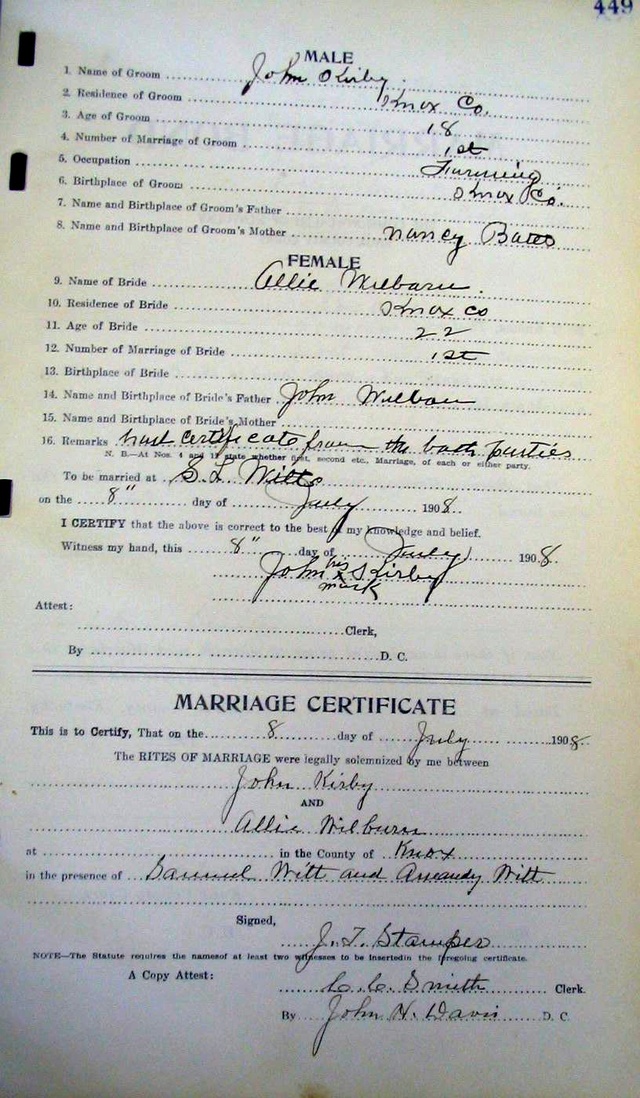 449
MALE
1. Name of Groom John Kirby
2. Residence of Groom Knox Co.
3. Age of Groom 18
4. Number of Marriage of Groom 1st
5. Occupation Farming
6. Birthplace of Groom Knox Co.
7. Name and Birthplace of Groom's Father
8. Name and Birthplace of Groom's Mother Nancy Bates
FEMALE
9. Name of Bride Allie Wilburn.
10. Residence of Bride Knox Co
11. Age of Bride 22
12. Number of Marriage of Bride 1st
13. Birthplace of Bride
14. Name and Birthplace of Bride's Father John
15. Name and Birthplace of Bride's Mother
16. Remarks certificate from the both parties
N. B.—At Nos. 4 and 12 state whether first, second etc. Marriage, of each or either party.
To be married at S. L. Witts
on the 8" day of July 1908
I CERTIFY that the above is correct to the best of my knowledge and belief.
Witness my hand, this 8" day of July 1908
John his x Kirby
mark
Attest:
Clerk,
By D. C.
MARRIAGE CERTIFICATE
This is to Certify, That on the 8 day of July 1908
The RITES OF MARRIAGE were legally solemnized by me between
John Kirby
AND
Allie Wilburn
at in the County of Knox
in the presence of Samuel Witt and Amandy Witt
Signed,
J. T. Stamper
NOTE—The Statute requires the names of at least two witnesses to be inserted in the foregoing certificate.
A Copy Attest:
C. C. Smith Clerk.
By John H. Davis D. C.